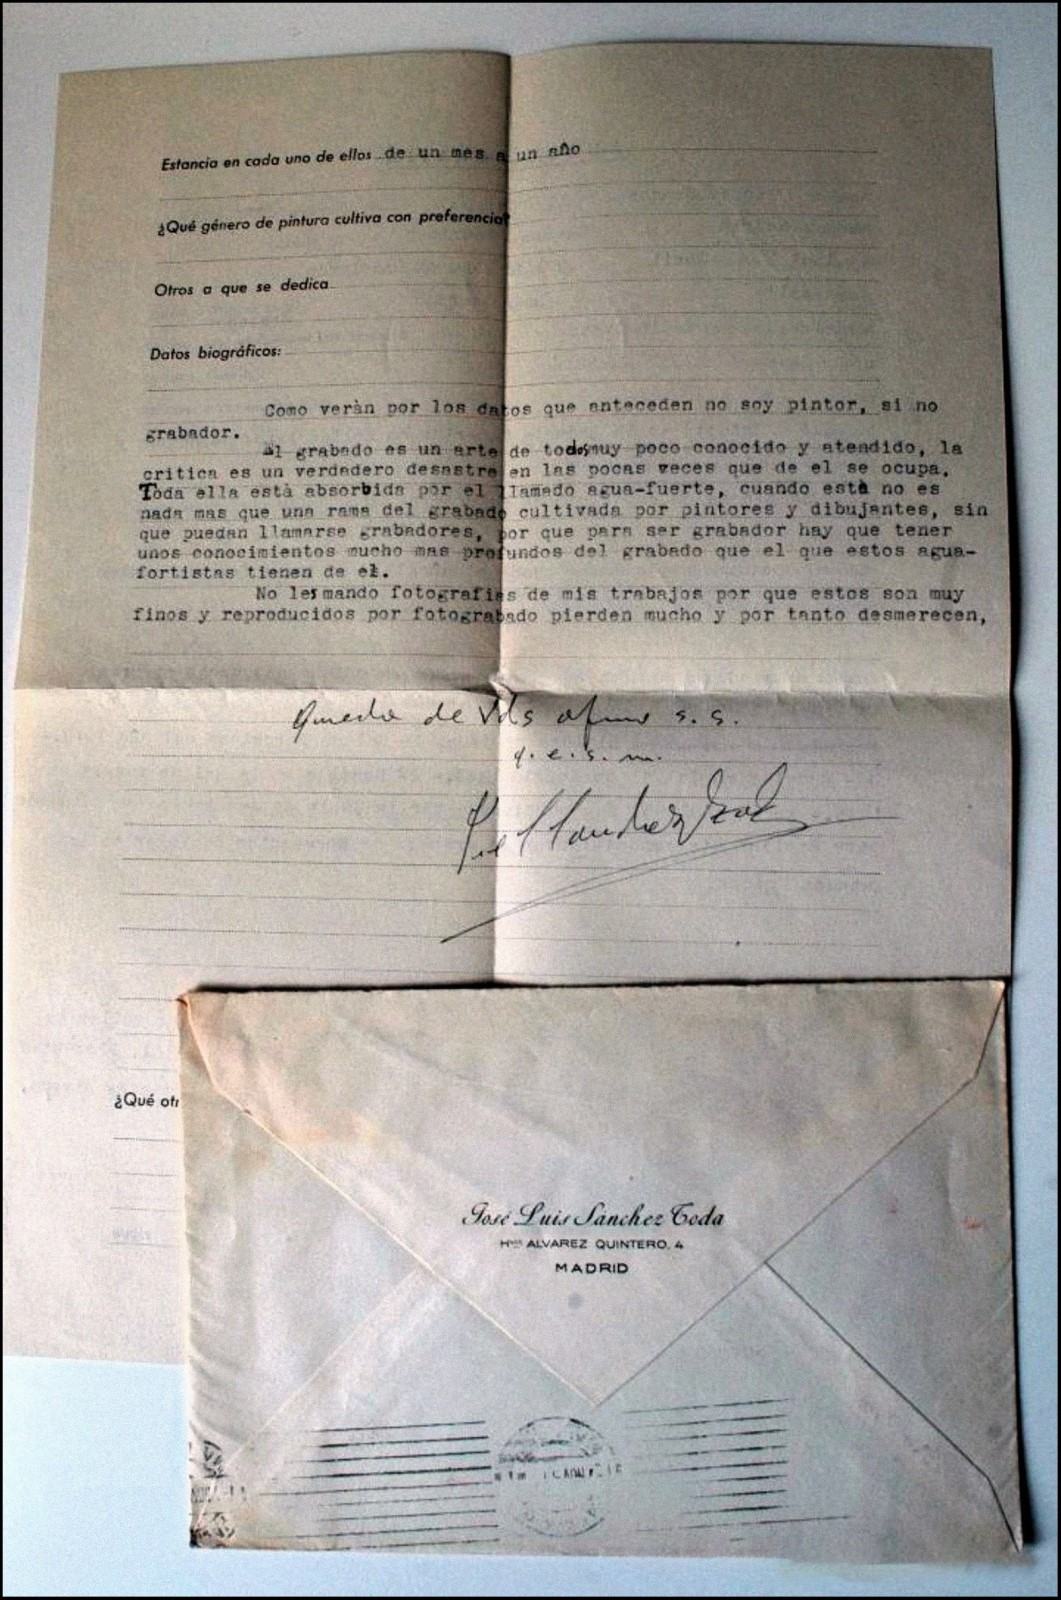 Estancia en cada uno de ellos de un mes a un año
¿Qué género de pintura cultiva con preferencia?
Otros a que se dedica
Datos biográficos:
Como veràn por los datos que anteceden no soy pintor, si no
grabador.
El grabado es un arte de todos muy poco conocido y atendido, la
critica es un verdadero desastre en las pocas veces que de el se ocupa.
Toda ella està absorbida por el llamado agua-fuerte, cuando està no es
nada mas que una rama del grabado cultivada por pintores y dibujantes, sin
que puedan llamarse grabadores, por que para ser grabador hay que tener
unos conocimientos mucho mas profundos del grabado que el que estos agua-
fortistas tienen de el.
No les mando fotografias de mis trabajos por que estos son muy
finos y reproducidos por fotograbado pierden mucho y por tanto desmerecen,
Queda de Vds afmo s. s.
q. e. s. m.
¿Qué otr
José Luis Sánchez Toda
Hnos ALVAREZ QUINTERO, 4
MADRID